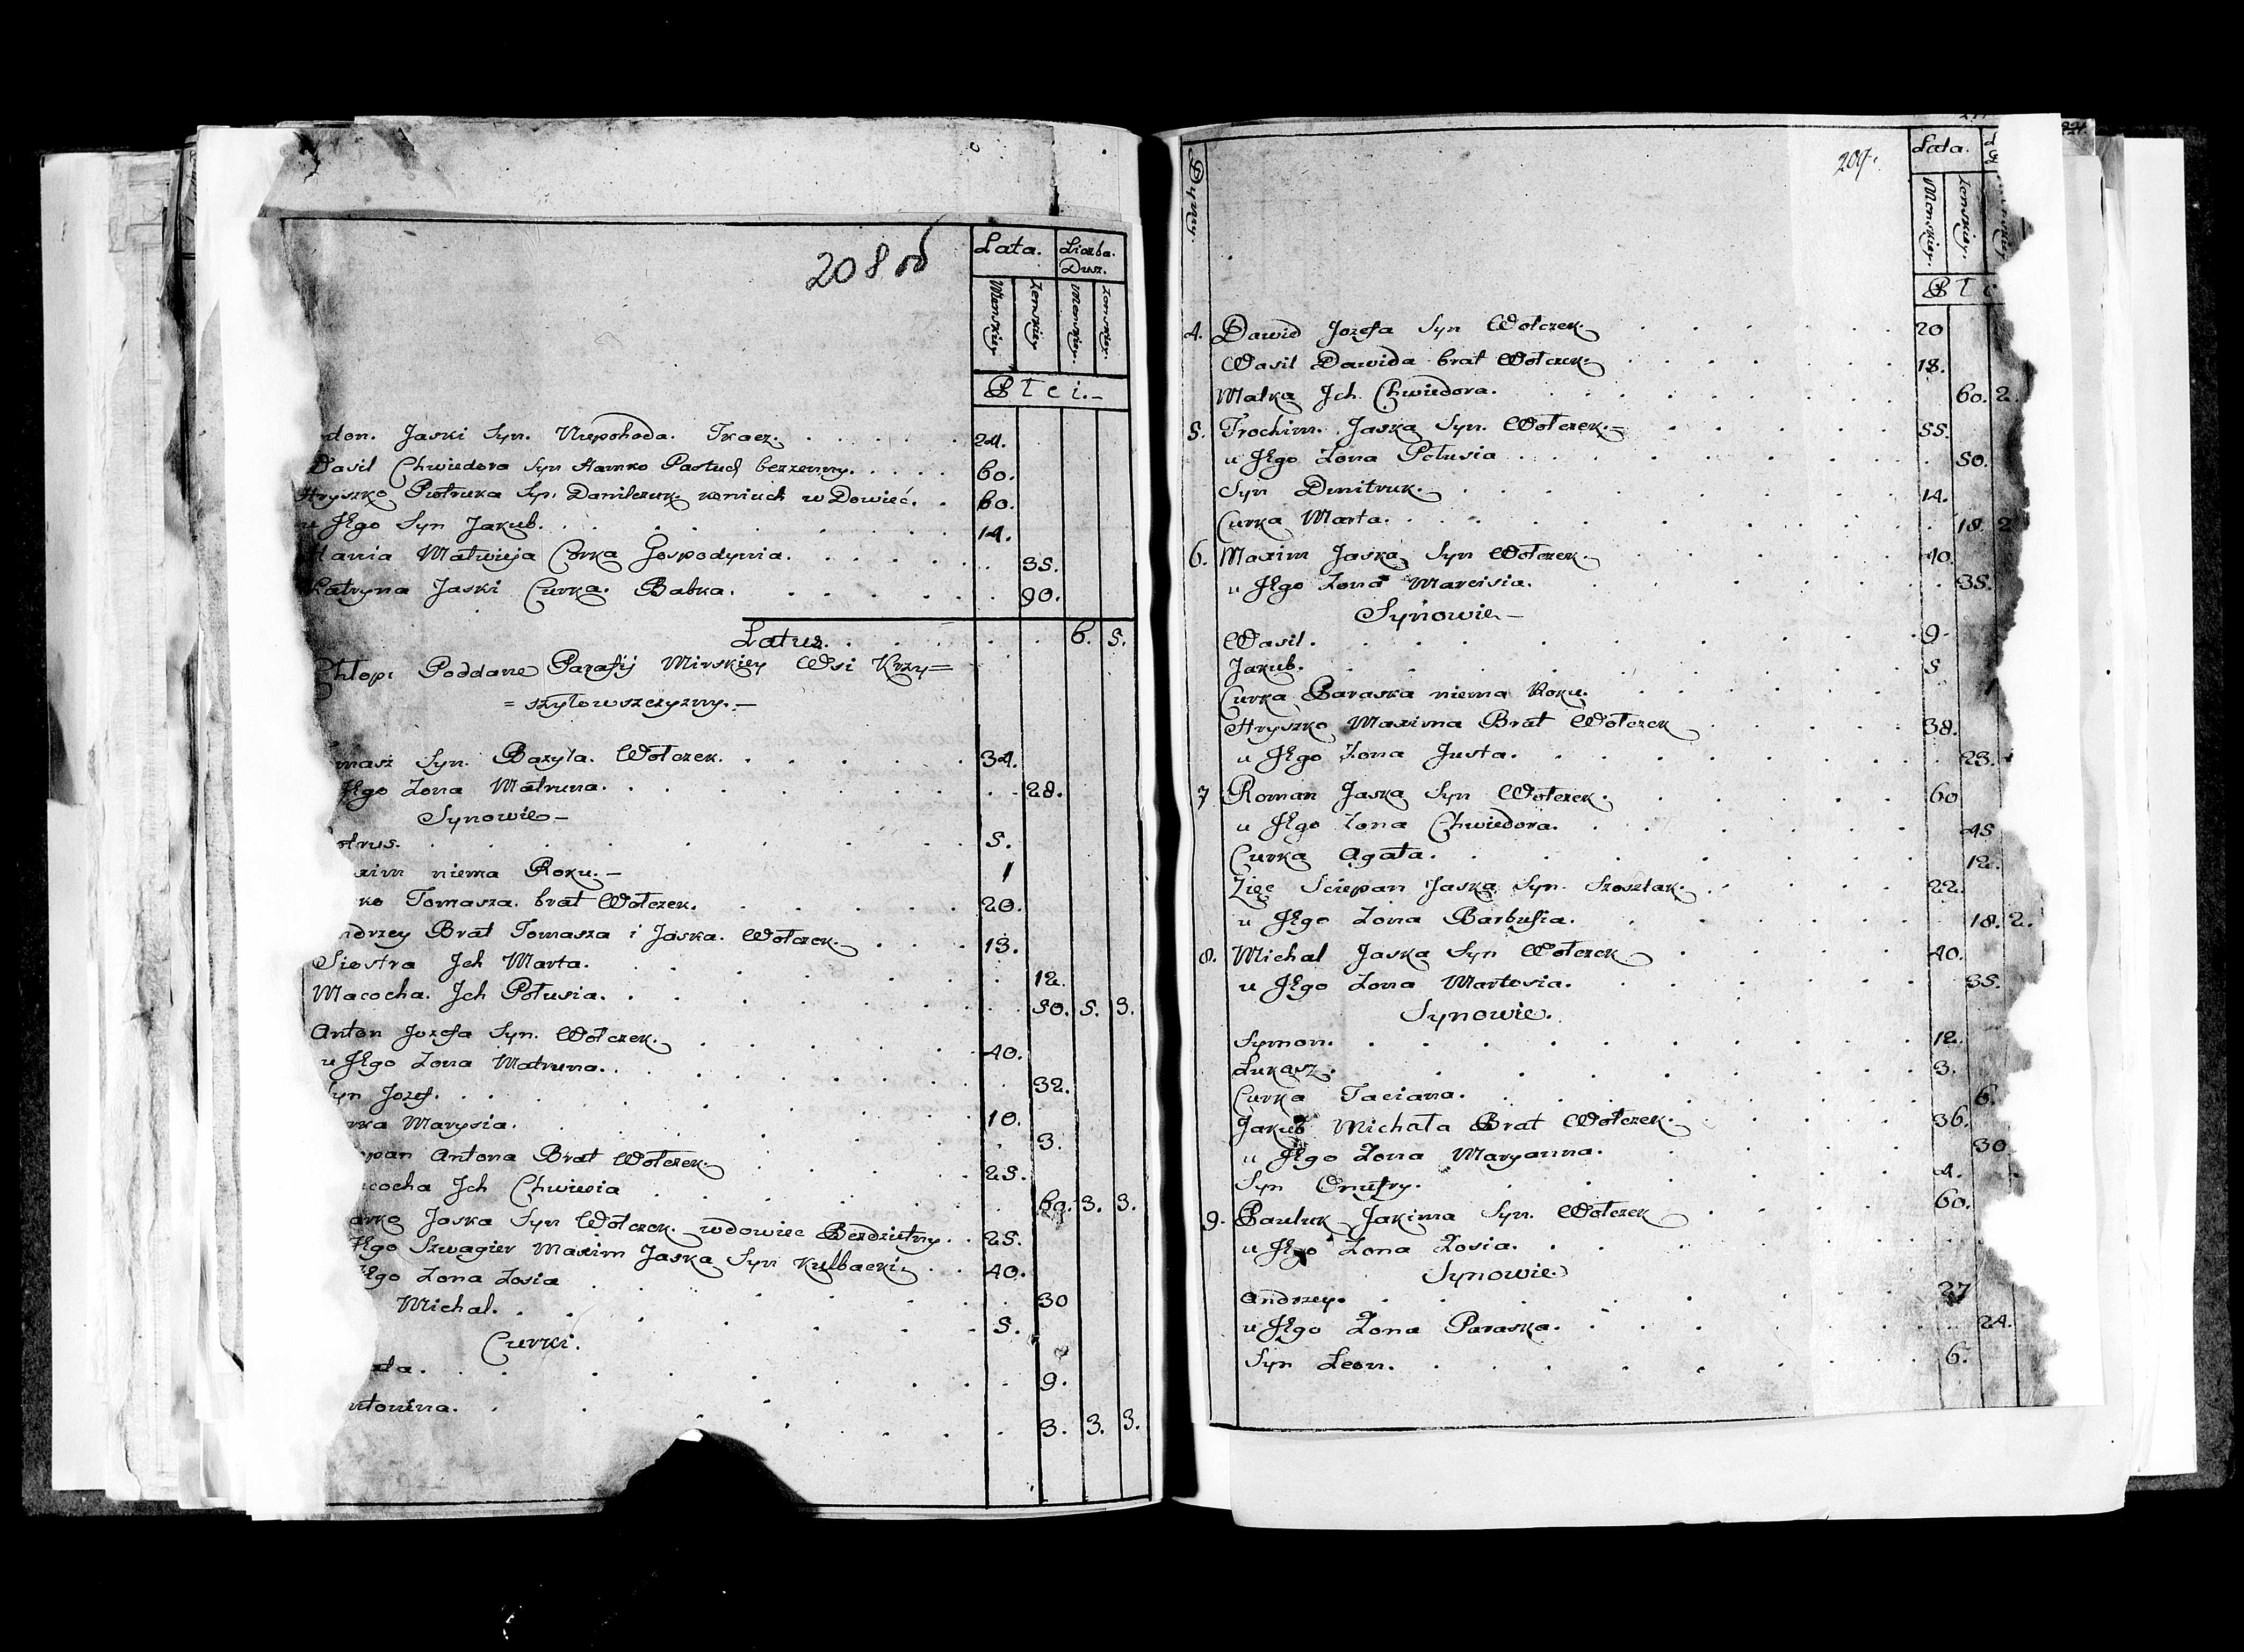 208 об
Lata. Liczba Dusz.
Męnskiey. Żenskiey. Męnskiey. Żenskiey.
Płci.-
nton. Jaski Syn. Niepohoda. Tkacz. 24.
Wasil Chwiedora Syn Hamko Pastuch bezżenny. 60.
Hryszko Piotruka Syn. Danilczuk koniuch wDowieć. 60.
u Jego Syn Jakub. 14.
Matwieja Curka Gospodynia. 35.
Katryna Jaski Curka. Babka. 90.
Latus. 6. 5.
Chłopi Poddane Parafij Mirskiey Wsi Krzy=
=szyłowszczyzny.-
masz Syn. Bazyla. Wołczek. 34.
Jego Żona Matruna. 28.
Synowie-
otrus. 5.
xim niema Roku.- 1
ko Tomasza. brat Wołczek. 20.
ndrzey Brat Tomasza i Jaska. Wołczek. 13.
Siostra Jch Marta. 12.
Macocha. Jch Połusia. 50. 5. 3.
Anton Jozefa Syn. Wołczek. 40.
u Jego Żona Matruna. 32.
Syn Jozef. 10.
rka Marysia. 3.
epan Antona Brat Wołczek. 25.
cocha Jch Chwiesia 60. 3. 3.
Jaska Syn Wołczek. wdowiec Bezdzietny. 25.
Jego Szwagier Maxim Jaska Syn Kulbacki. 40.
Jego Żona Zosia 30
Michal. 5.
Curki.
ata. 9.
ntonina. 3. 3. 3.
209.
Dymy. Lata.
Męnskiey. Żenskiey.
Płc
4. Dawid Jozefa Syn Wołczek. 20
Wasil Dawida brat Wołczek. 18.
Matka Jch Chwiedora. 60. 2.
5. Trochim. Jaska Syn. Wołczek.- 55.
u Jego Żona Połusia 50.
Syn Dmitruk. 14.
Curka Marta. 18. 2
6. Maxim Jaska Syn Wołczek. 40.
u Jego Żona Marcisia. 35.
Synowie-
Wasil. 9.
Jakub. 5
Curka Paraska niema Roku. 1
Hryszko Maxima Brat Wołczek 38.
u Jego Żona Justa. 28.
7 Roman Jaska Syn Wołczek. 60
u Jego Żona Chwiedora. 45
Curka Agata. 12.
Zięć Sciepan Jaska Syn. Szosztak. 22.
u Jego Żona Barbusia. 18. 2.
8. Michal Jaska Syn Wołczek 40.
u Jego Żona Martosia. 35.
Synowie.
Symon. 12.
Łukasz. 3.
Curka Taciana. 6.
Jakub Michała Brat Wołczek. 36.
u Jego Żona Maryanna. 30
Syn Onufry. 4.
9. Pauluk Jakima Syn. Wołczek 60.
u Jego Żona Zosia.
Synowie
Andrzey. 27
u Jego Żona Paraska. 24.
Syn Leon. 6.